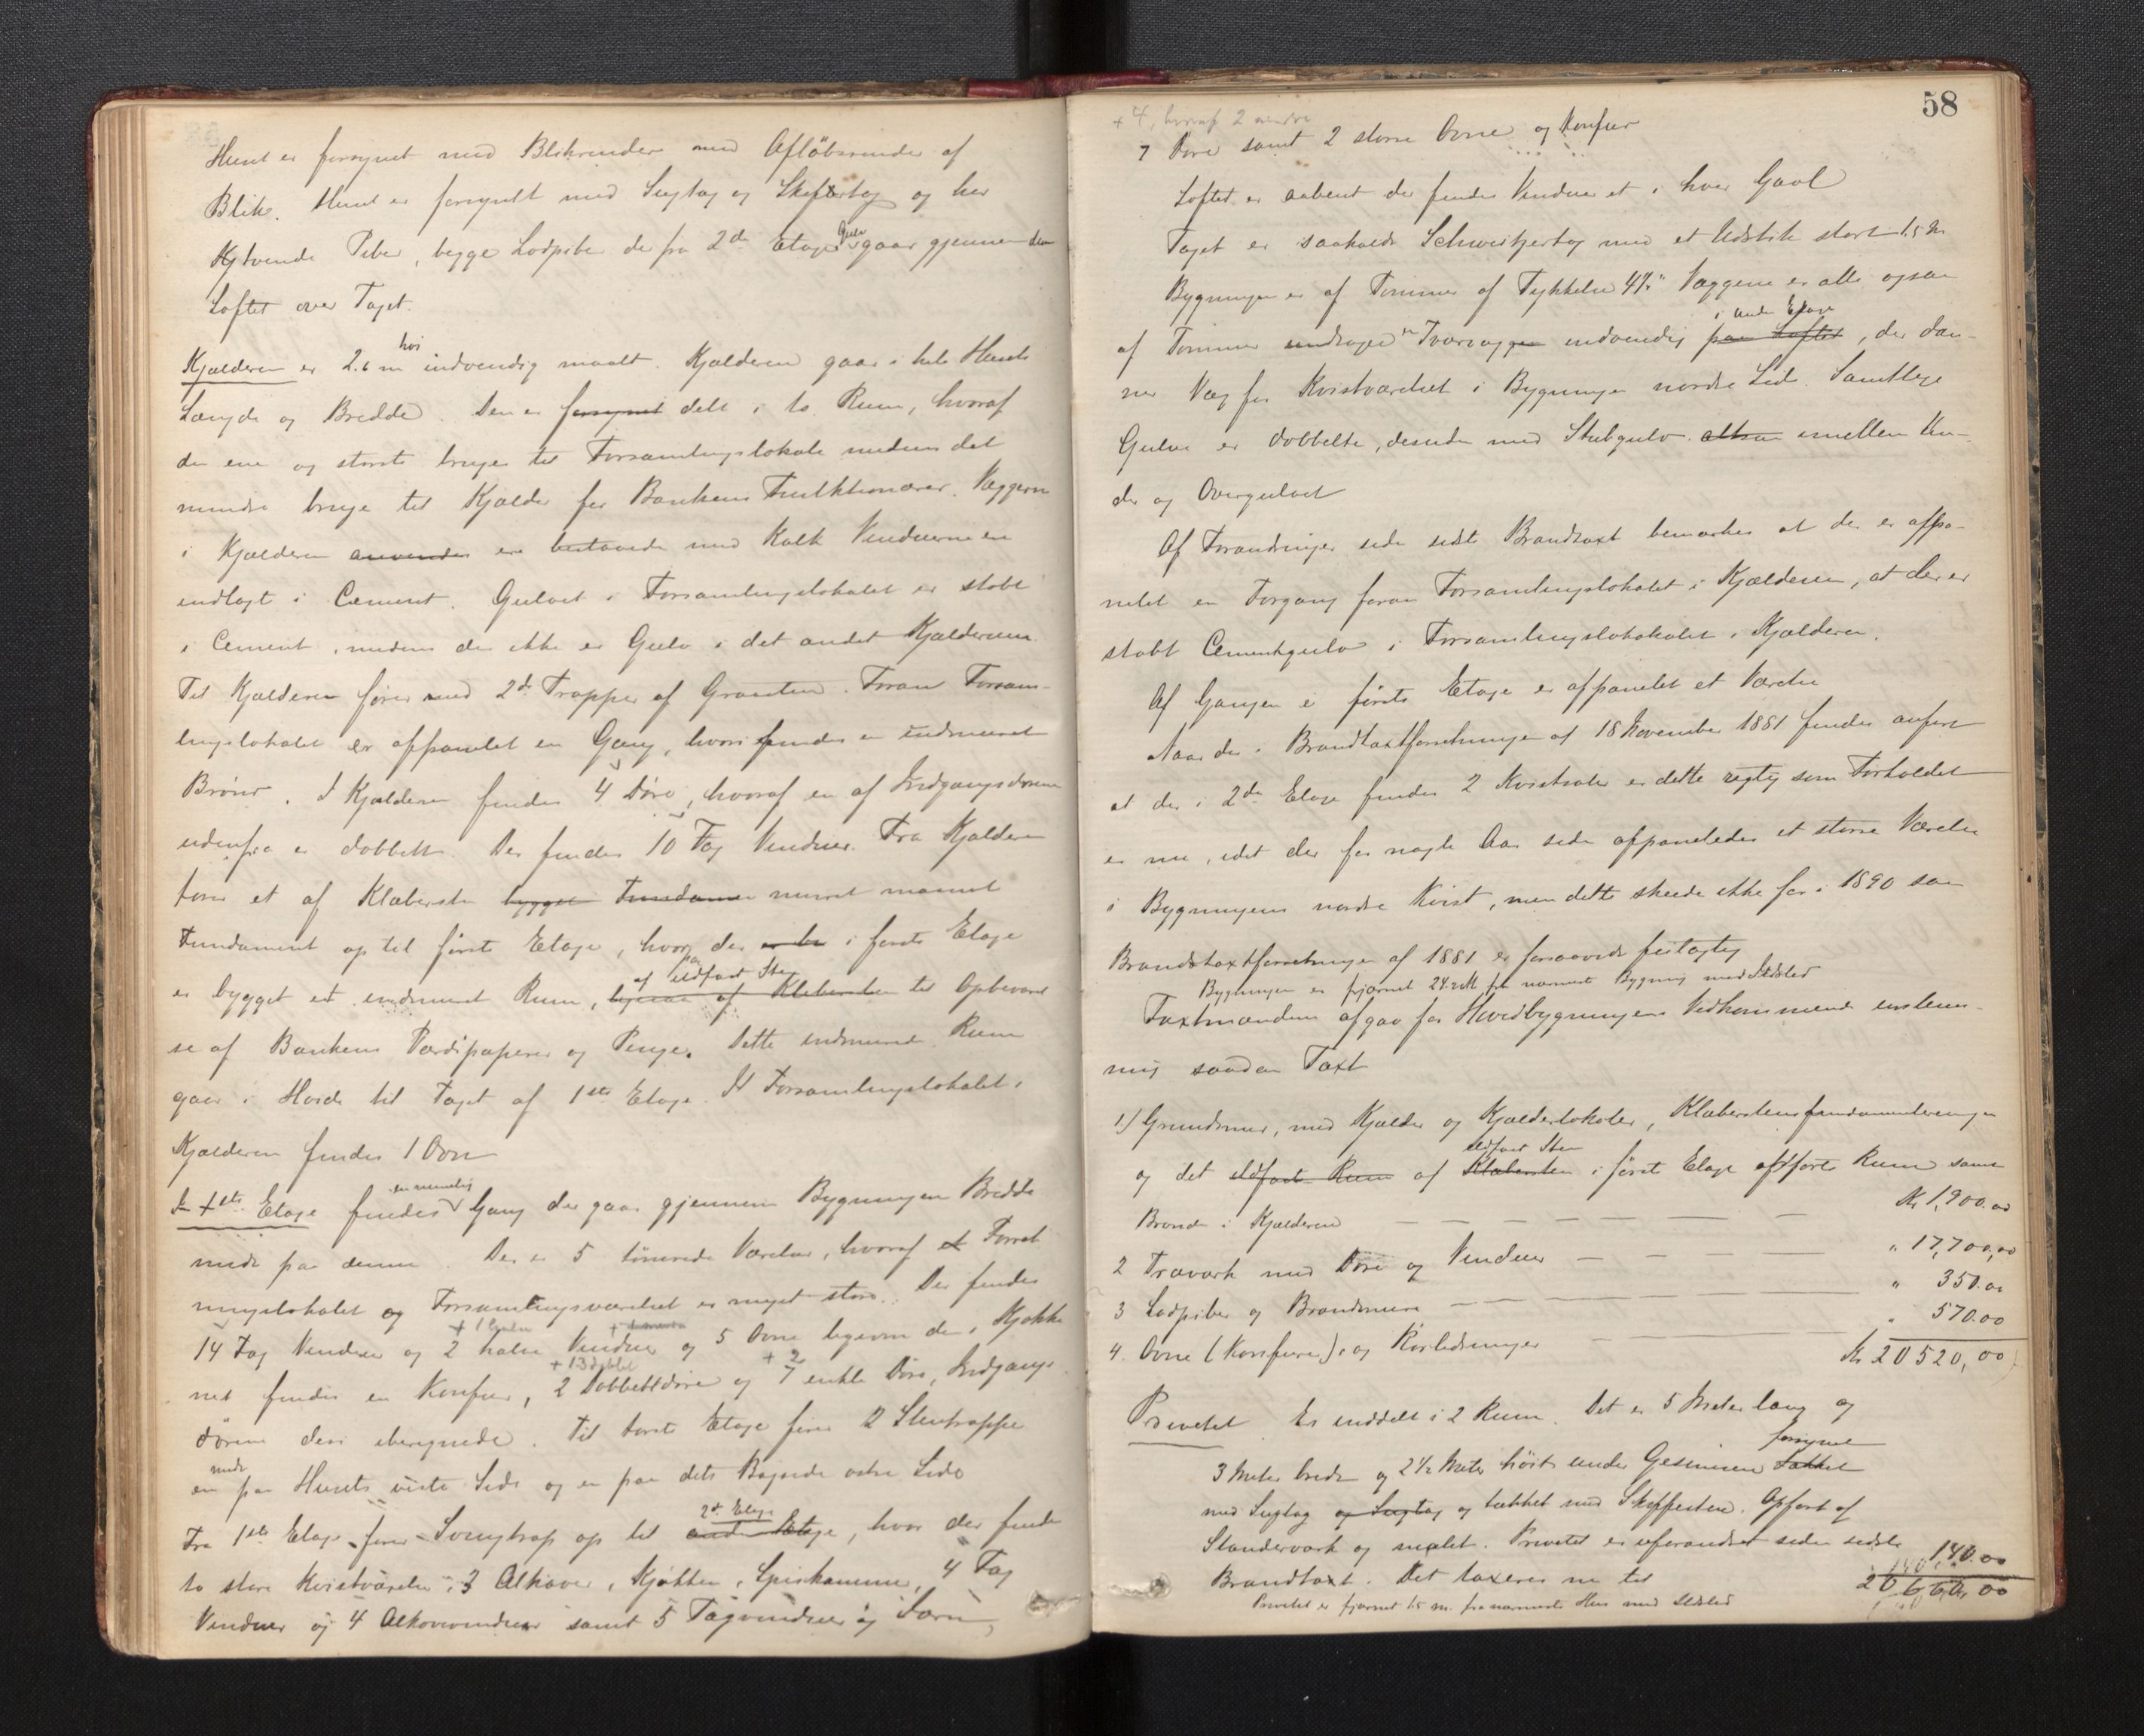 Huset er forsynet med Blikrender med Afløbsrender af
Blik. Huset er forsynet med Sugtag og Skifertag og har
tvende Piber, begge Lodpiber der fra 2den Etages Gulv gaar gjennem
Loftet over Taget.
Kjælderen er 2.6 m høi indvendig maalt. Kjælderen gaar i hele Husets
Længde og Bredde. Den er forsynet delt i to Rum, hvoraf
den ene og største bruges til Forsamlingslokale medens det
mindre bruges til Kjælder for Bankens Funktionærer. Væggene
i Kjælderen anvendes ere med Kalk Vinduerne ere
indlagt i Cement. Gulvet i Forsamlingslokalet er støbt
i Cement, medens der ikke er Gulv i det andet Kjælderrum.
Til Kjælderen fører ned 2de Trapper af Graasten. Foran Forsam-
lingslokalet er afpanelet en Gang, hvori findes en indmuret
Brønd. I Kjælderen findes 4 Døre, hvoraf en af Indgangsdørene
udenfra er dobbelt. Der findes 10 Fag Vinduer. Fra Kjælderen
fører et af Klæbersten bygget Fundament muret massivt
Fundament op til første Etage, hvorpaa der i første Etage
er bygget et indmuret Rum, af ildfast Sten ligesaa af Klæbersten til Opbevarel-
se af Bankens Værdipapirer og Penge. Dette indmurede Rum
gaar i Høide til Taget af 1ste Etage. I Forsamlingslokalet i
Kjælderen findes 1 Ovn
I 1ste Etage findes en rummelig Gang der gaar gjennem Bygningens Bredde
midt paa denne. Der er 5 tømrede Værelser, hvoraf et Forret
ningslokalet og Forsamlingsværelset er meget store. Der findes
14 Fag Vinduer og 2 halve Vinduer og 5 Ovne ligesom der i Kjøkke
net findes en Komfur, 2 Dobbeltdøre og 7 enkle Døre, Indgangs
dørene deri iberegnede. Til første Etage fører 2 Stentrapper
en midt paa Husets vestre Side og en paa dets Bagside østre Side
Fra 1ste Etage fører Svingtrap op til anden Etage 2den Etage, hvor der findes
to store Kvistværelser, 3 Alkover, Kjøkken, Spiskammer, 4 Fag
Vinduer og 4 Alkovevinduer samt 5 Tagvinduer og
58
+ 4, hvoraf 2 mindre
7 Døre samt 2 større Ovne og Komfur
Loftet er aabent der findes Vinduer et i hver Gavl
Taget er saakaldt Schweitzertag med et Udstik stort 1.5 M
Bygningen er af Tømmer af Tykkelse 4½" Væggene er alle ogsaa
af Tømmer undtagen en Tværvæggen indvendig paa Loftet i anden Etage, der dan-
ner Væg for Kvistværelset i Bygningens nordre Side. Samtlige
Gulve er dobbelte, desuden med Stubgulv altsaa imellem Un-
der og Overgulvet
Af Forandringer siden sidste Brandtaxt bemærkes at der er afpa-
nelet en Forgang foran Forsamlingslokalet i Kjælderen, at der er
støbt Cementgulv i Forsamlingslokalet i Kjælderen.
Af Gangen i første Etage er afpanelet et Værelse
Naar der i Brandtaxtforretningen af 18 November 1881 findes anført
at der i 2den Etage findes 2 Kvistsaler er dette rigtig som Forholdet
er nu, idet der for nogle Aar siden afpaneledes et større Værelse
i Bygningens nordre Kvist, men dette skeede ikke før i 1890 saa
Brandtaxtforretningen af 1881 er forsaavidt feilagtig
Bygningen er fjernet 24.2 M fra nærmeste Bygning med Ildsted
Taxtmændene afgav for Hovedbygningens Vedkommende enstem-
mig saadan Taxt
1) Grundmur, med Kjælder og Kjælderlokaler, Klæberstensfundamenteringen
og det ildfast Rum af Klæbersten ildfast Sten i først Etage opførte Rum samt
Brønd i Kjælderen — — — — — Kr 1,900.00
2 Træværk med Døre og Vinduer — — — — " 17,700,00
3 Lodpiber og Brandmure — — — — " 350.00
4. Ovne (Komfurer), og Rørledninger — — " 570.00
Kr 20520,00
Privetet Er inddelt i 2 Rum. Det er 5 Meter lang og
3 Meter bredt og 2½ Meter høit under Gesimsen takket forsynet
med Sugtag og Sugtag og tækket med Skiffersten. Opført af
Standerværk og malet. Privetet er uforandret siden sidste
Brandtaxt. Det taxeres nu til 140.00
20660,00
Privetet er fjernet 15 m. fra nærmeste Hus med Ildsted